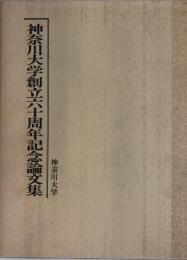 神奈川大学創立六十周年記念論文集
神奈川大学